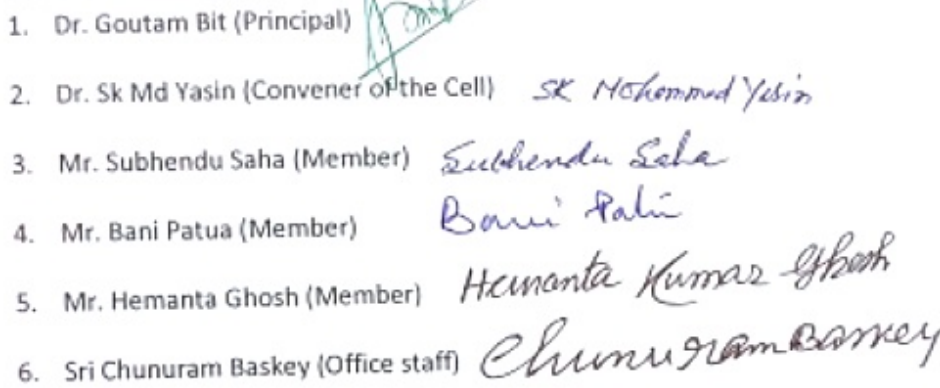 1. Dr. Goutam Bit (Principal)
2. Dr. Sk Md Yasin (Convener of the Cell) SK Mohammed Yasin
3. Mr. Subhendu Saha (Member) Subhendu Saha
4. Mr. Bani Patua (Member) Bani
5. Mr. Hemanta Ghosh (Member) Hemanta Kumar Ghosh
6. Sri Chunuram Baskey (Office staff) Chunuram Baskey